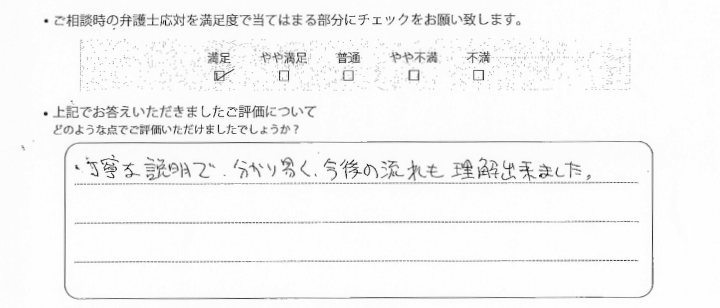 ・ご相談時の弁護士応対を満足度で当てはまる部分にチェックをお願い致します。
満足 やや満足 普通 やや不満 不満
☑ □ □ □ □
・上記でお答えいただきましたご評価について
どのような点でご評価いただけましたでしょうか？
・丁寧な説明で、分かり易く、今後の流れも理解出来ました。